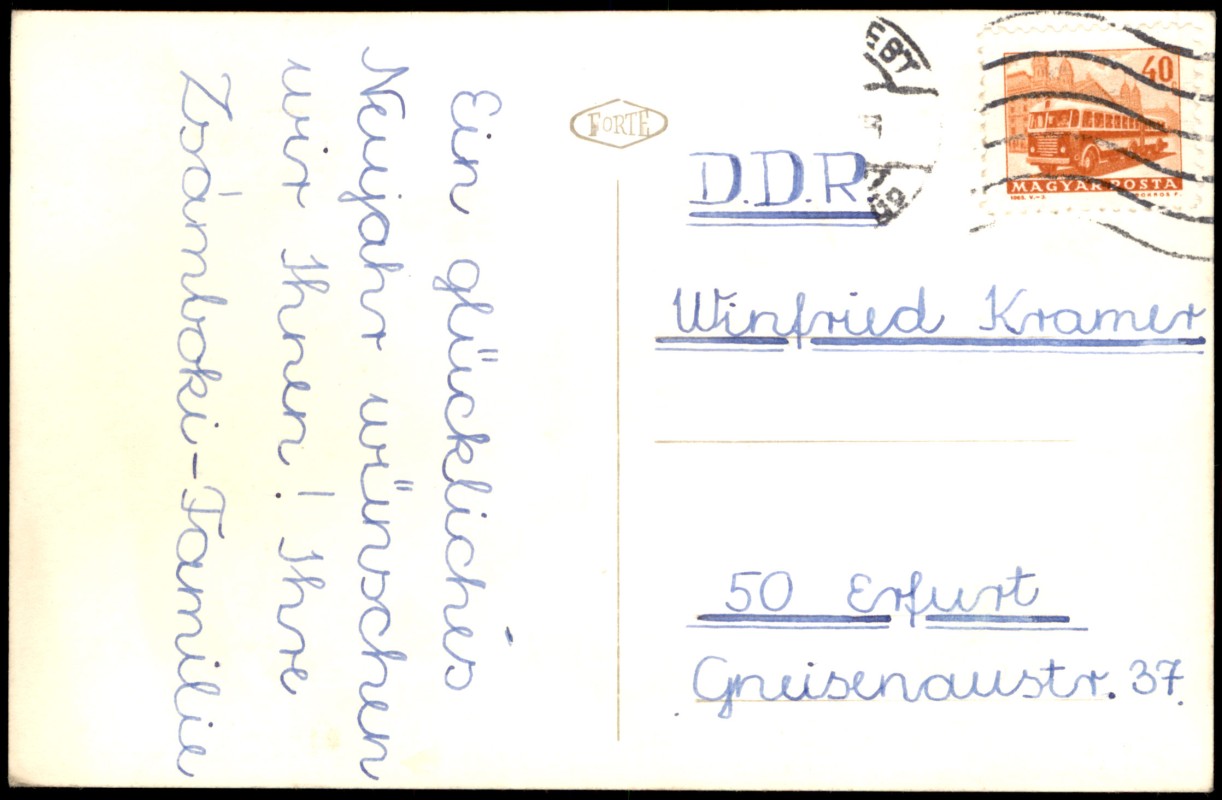 Ein glückliches
Neujahr wünschen
wir Ihnen! Ihre
Zsámboki-Familie
FORTE
40
MAGYAR POSTA
D.D.R.
Winfried Kramer
50 Erfurt
Gneisenaustr. 37.